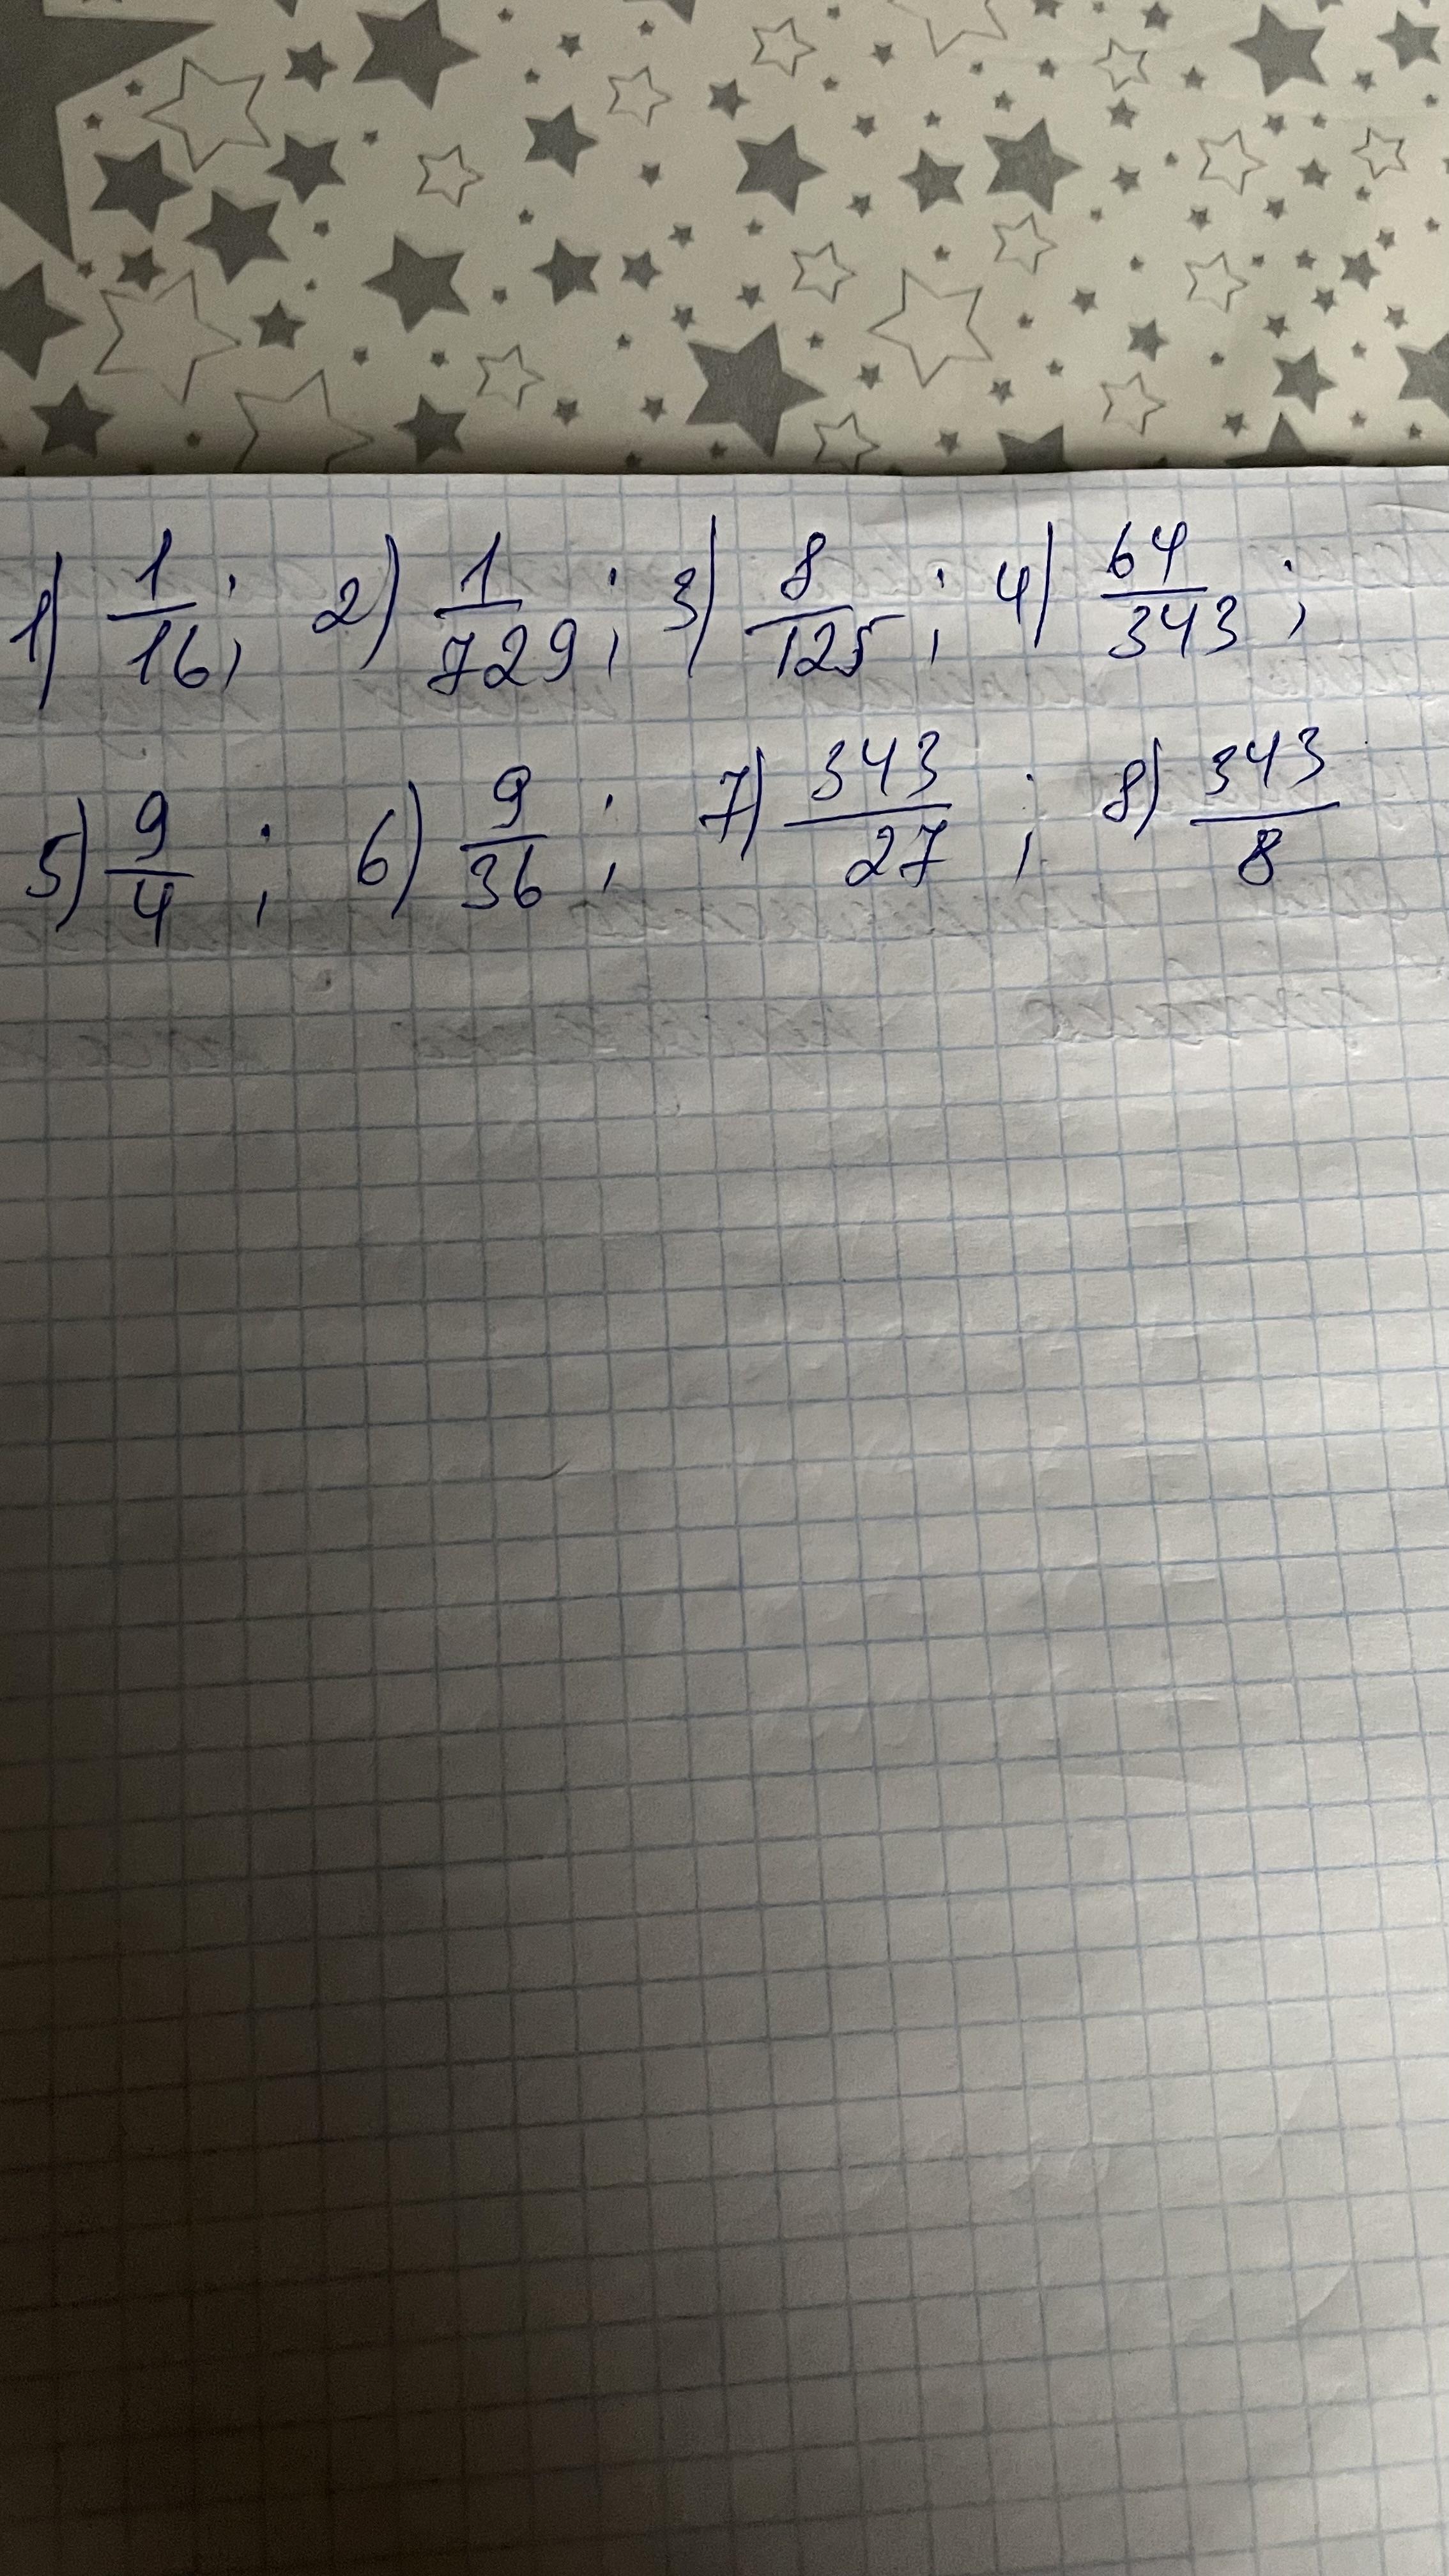 1) 1/16; 2) 1/729; 3) 8/125; 4) 64/343;
5) 9/4; 6) 9/36; 7) 343/27; 8) 343/8